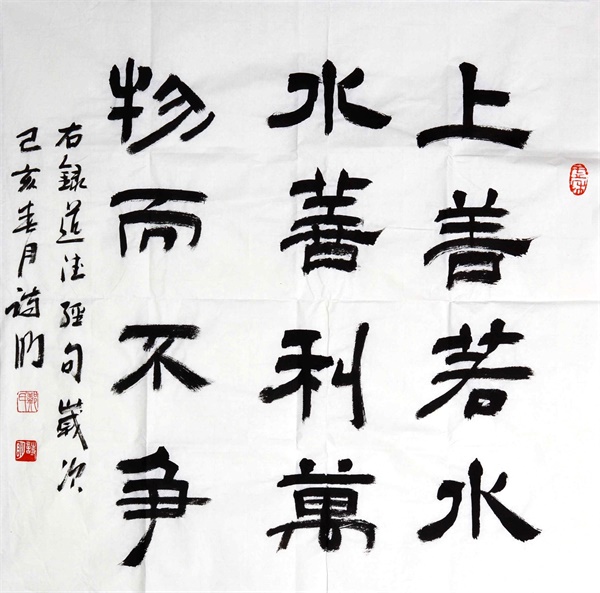 上善若水
水善利萬
物而不争
右録道德經句歲次
己亥春月詩明